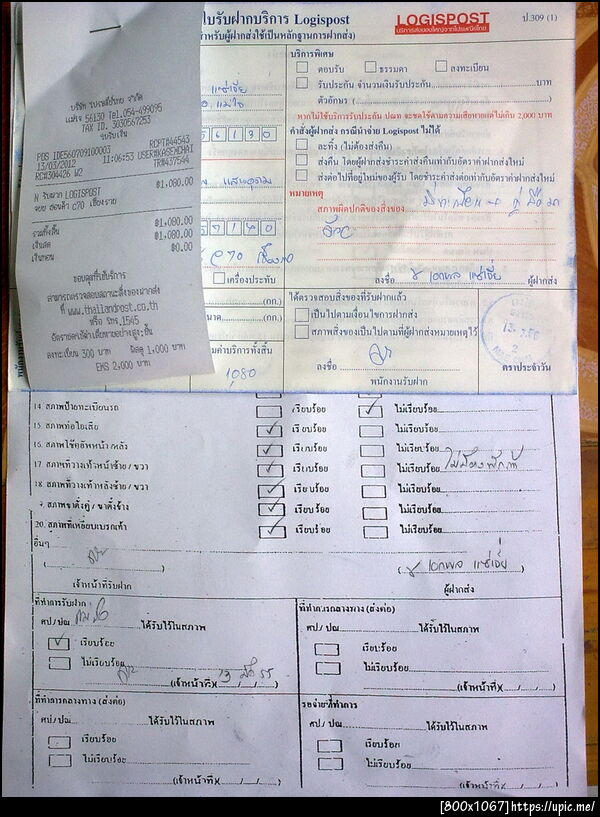 ใบรับฝากบริการ Logispost
(สำหรับผู้ฝากส่งใช้เป็นหลักฐานการฝากส่ง)
LOGISPOST
ป.309 (1)
บริษัท ไปรษณีย์ไทย จำกัด
แม่ใจ 56130 Tel.054-499095
TAX ID. 3030567253
ใบรับเงิน
POS IDE560709100003 RCPT#44543
13/03/2012 11:06:53 USER#KASENCHAI
RC#304426 W2 TR#37544
N รับฝาก LOGISPOST ฿1,080.00
รวมทั้งสิ้น ฿1,080.00
เงินสด ฿1,080.00
เงินทอน ฿0.00
ขอบคุณที่ใช้บริการ
สามารถตรวจสอบสถานะสิ่งของฝากส่ง
ที่ www.thailandpost.co.th
หรือ โทร.1545
อัตราชดใช้ค่าเสียหายอย่างสูง:ชิ้น
ลงทะเบียน 300 บาท พัสดุ 1,000 บาท
EMS 2,000 บาท
56130
บริการพิเศษ
ตอบรับ ธรรมดา ลงทะเบียน
รับประกัน จำนวนเงินรับประกัน บาท
ตัวอักษร ( )
หากไม่ใช้บริการรับประกัน ปณท จะชดใช้ตามความเสียหายแต่ไม่เกิน 2,000 บาท
คำสั่งผู้ฝากส่ง กรณีนำจ่าย Logispost ไม่ได้
ละทิ้ง (ไม่ต้องส่งคืน)
ส่งคืน โดยผู้ฝากส่งชำระค่าส่งคืนเท่ากับอัตราค่าฝากส่งใหม่
ส่งต่อไปที่อยู่ใหม่ของผู้รับ โดยชำระค่าส่งต่อเท่ากับอัตราค่าฝากส่งใหม่
หมายเหตุ
สภาพผิดปกติของสิ่งของ
เครื่องประทับ
ลงชื่อ ผู้ฝากส่ง
(กก.)
(กก.)
ค่าบริการทั้งสิ้น
1080
ได้ตรวจสอบสิ่งของที่รับฝากแล้ว
เป็นไปตามเงื่อนไขการฝากส่ง
สภาพสิ่งของเป็นไปตามที่ผู้ฝากส่งหมายเหตุไว้
ลงชื่อ
พนักงานรับฝาก
ตราประจำวัน
14. สภาพป้ายทะเบียนรถ เรียบร้อย ไม่เรียบร้อย
15. สภาพท่อไอเสีย เรียบร้อย ไม่เรียบร้อย
16. สภาพโช๊คอัพหน้า/หลัง เรียบร้อย ไม่เรียบร้อย
17. สภาพที่วางเท้าหน้าซ้าย / ขวา เรียบร้อย ไม่เรียบร้อย
18. สภาพที่วางเท้าหลังซ้าย / ขวา เรียบร้อย ไม่เรียบร้อย
สภาพขาตั้งคู่ / ขาตั้งข้าง เรียบร้อย ไม่เรียบร้อย
20. สภาพที่เหยียบเบรกเท้า เรียบร้อย ไม่เรียบร้อย
อื่นๆ
เจ้าหน้าที่รับฝาก ผู้ฝากส่ง
ที่ทำการรับฝาก
ศป/ ปณ. แม่ใจ ได้รับไว้ในสภาพ
เรียบร้อย
ไม่เรียบร้อย
(เจ้าหน้าที่)
ที่ทำการกลางทาง (ส่งต่อ)
ศป./ ปณ. ได้รับไว้ในสภาพ
เรียบร้อย
ไม่เรียบร้อย
(เจ้าหน้าที่)
ที่ทำการกลางทาง (ส่งต่อ)
ศป/ ปณ. ได้รับไว้ในสภาพ
เรียบร้อย
ไม่เรียบร้อย
(เจ้าหน้าที่)
ที่ทำการ
ศป./ ปณ. ได้รับไว้ในสภาพ
เรียบร้อย
ไม่เรียบร้อย
(เจ้าหน้าที่)
[800x1067]https://upic.me/